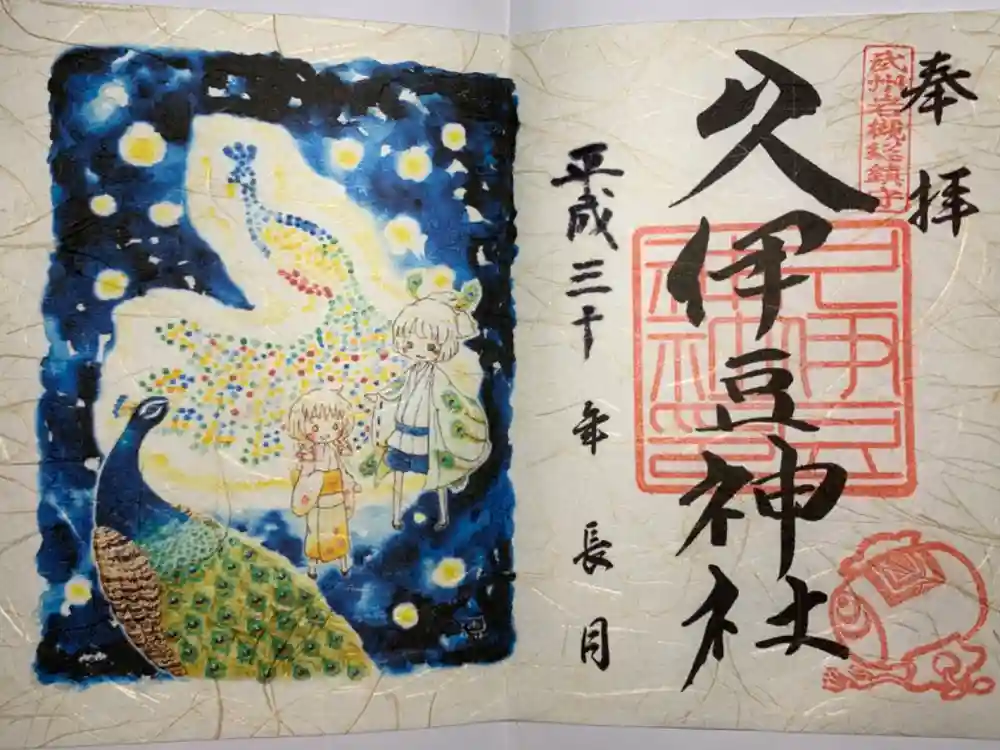 奉拝
武州岩槻総鎮守
久伊豆神社
久伊豆
神社印
平成三十年長月